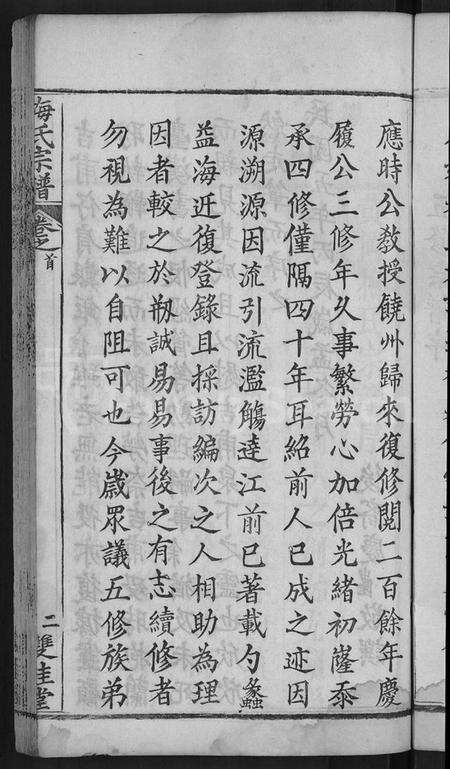 應時公教授饒州歸來復修閱二百餘年慶
履公三修年久事繁勞心加倍光緒初蓥忝
承四修僅隔四十年耳紹前人已成之迹因
源溯源因流引流濫觴達江前已著載勺蠡
益海近復登錄且採訪編次之人相助為理
因者較之於剏誠易易事後之有志續修者
勿視為難以自阻可也今歲眾議五修族弟
梅氏宗譜
卷之首
二
雙桂堂